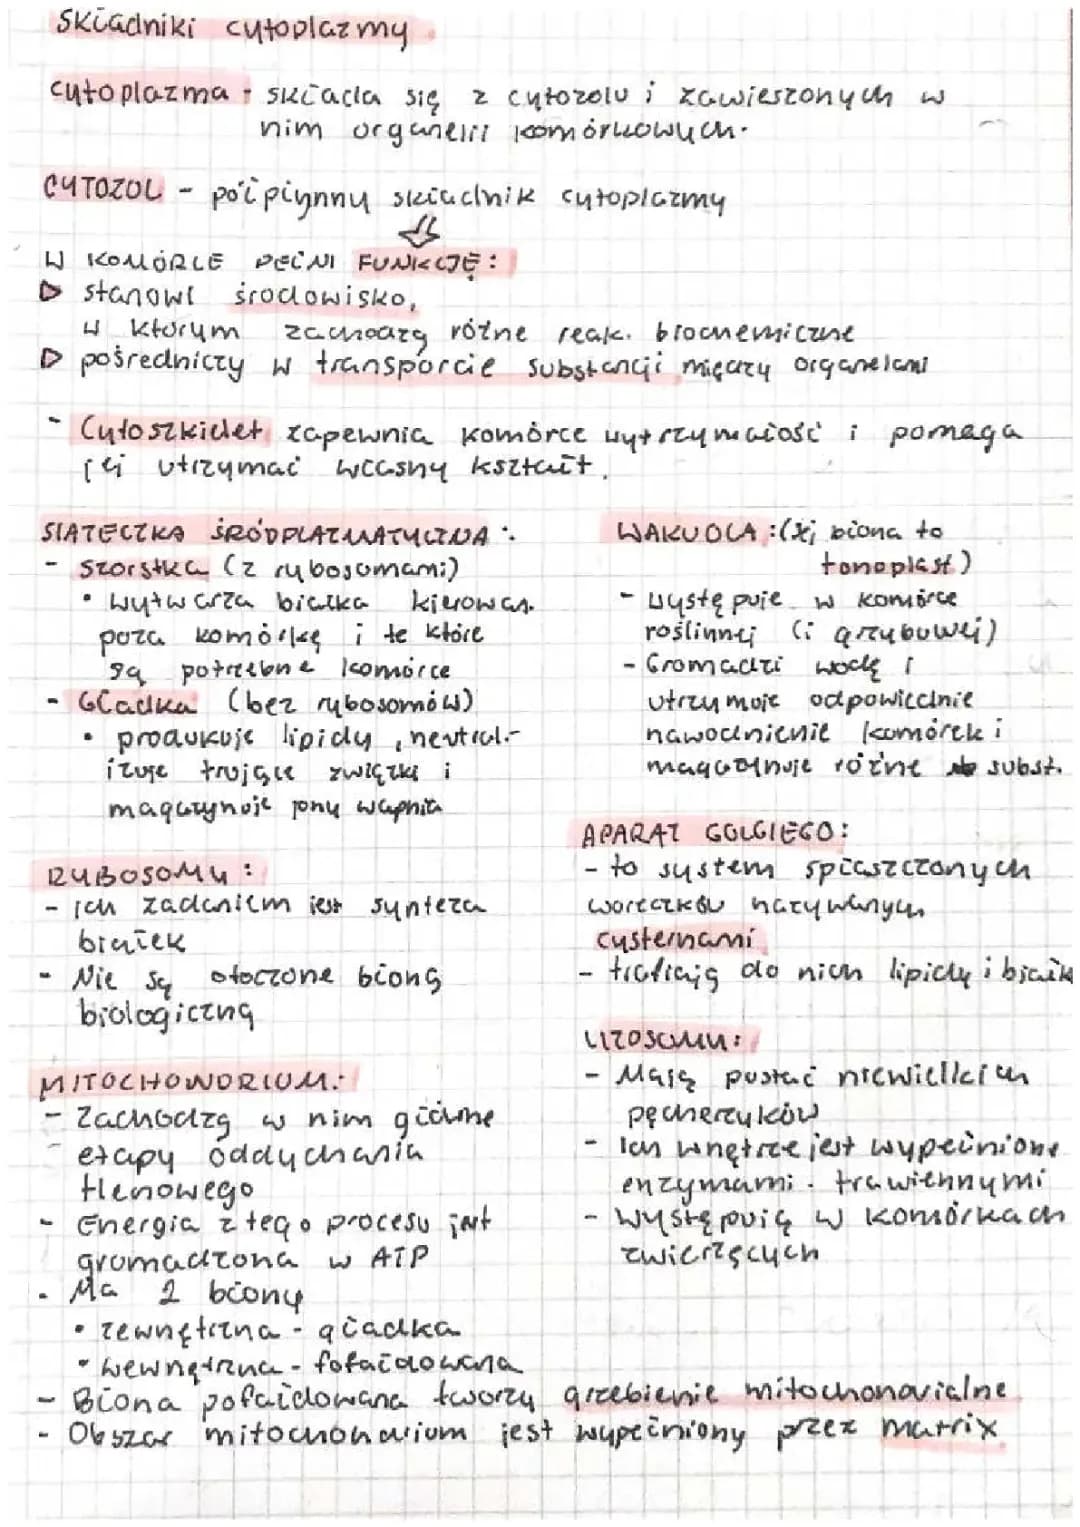 Składniki cytoplazmy
cytoplazma - składa się z cytozolu i zawieszonych w
nim organelli komórkowych.
CYTOZOL - półpłynny składnik cytoplazmy
W KOMÓRCE PEŁNI FUNKCJĘ:
stanowi środowisko,
w którym zachodzą różne reak. biochemiczne
pośredniczy w transporcie substancji między organelami
- Cytoszkielet zapewnia komórce wytrzymałość i pomaga
jej utrzymać własny kształt.
SIATECZKA ŚRÓDPLAZMATYCZNA:
- szorstka (z rybosomami)
• wytwarza białka kierowan.
poza komórkę i te które
są potrzebne komórce
- Gładka (bez rybosomów)
• produkuje lipidy, neutral-
izuje trujące związki i
magazynuje jony wapnia
RYBOSOMY:
- ich zadaniem jest synteza
białek
- Nie są otoczone błoną
biologiczną
MITOCHONDRIUM:
- Zachodzą w nim główne
- etapy oddychania
tlenowego
- Energia z tego procesu jest
gromadzona w ATP
- Ma 2 błony
• zewnętrzna - gładka
• wewnętrzna - pofałdowana
- Błona pofałdowana tworzy grzebienie mitochondrialne
- Obszar mitochondrium jest wypełniony przez matrix
WAKUOLA: (jej błona to
tonoplast)
- występuje w komórce
roślinnej (i grzybowej)
- Gromadzi wodę i
utrzymuje odpowiednie
nawodnienie komórek i
magazynuje różne subst.
APARAT GOLGIEGO:
- to system spłaszczonych
woreczków nazywanych
cysternami
- trafiają do nich lipidy i białk
LIZOSOMY:
- Mają postać niewielkich
pęcherzyków
- Ich wnętrze jest wypełnione
enzymami trawiennymi
- Występują w komórkach
zwierzęcych